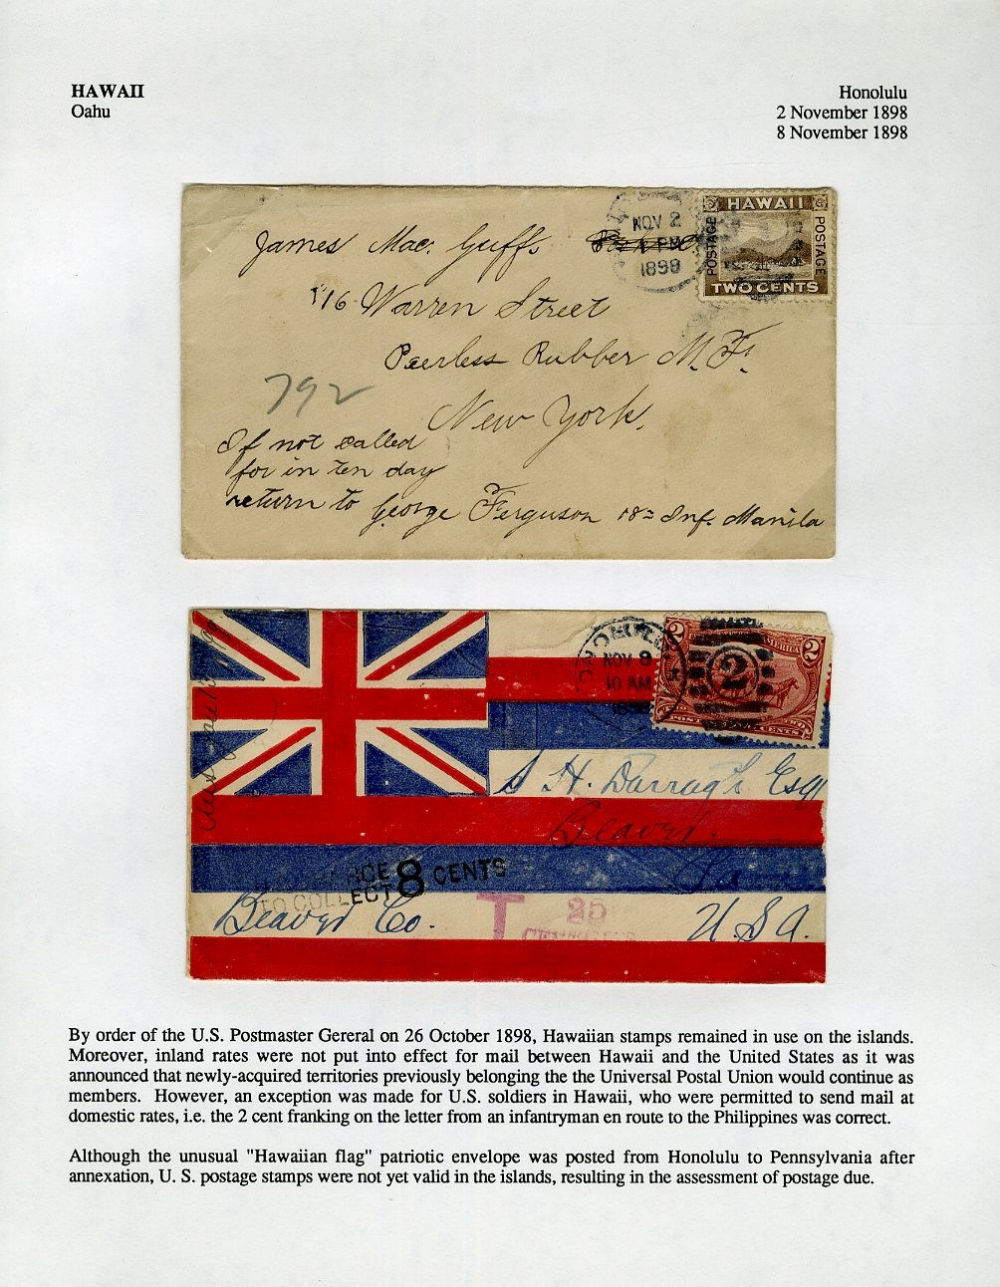 HAWAII
Oahu
Honolulu
2 November 1898
8 November 1898
James Mac. Guffs
NOV 2
1898
HAWAII
POSTAGE
POSTAGE
TWO CENTS
116 Warren Street
Peerless Rubber M.F.
792
New York.
If not called
for in ten day
return to George Ferguson 18= Inf. Manila
HONOLULU
NOV 8
10 AM
2
2
2
AMERICA
CENTS
S H. Darragh Esq
Beaver.
TO COLLECT 8 CENTS
Beaver Co.
T
25
U.S.A.
By order of the U.S. Postmaster Gereral on 26 October 1898, Hawaiian stamps remained in use on the islands.
Moreover, inland rates were not put into effect for mail between Hawaii and the United States as it was
announced that newly-acquired territories previously belonging the the Universal Postal Union would continue as
members. However, an exception was made for U.S. soldiers in Hawaii, who were permitted to send mail at
domestic rates, i.e. the 2 cent franking on the letter from an infantryman en route to the Philippines was correct.
Although the unusual "Hawaiian flag" patriotic envelope was posted from Honolulu to Pennsylvania after
annexation, U. S. postage stamps were not yet valid in the islands, resulting in the assessment of postage due.